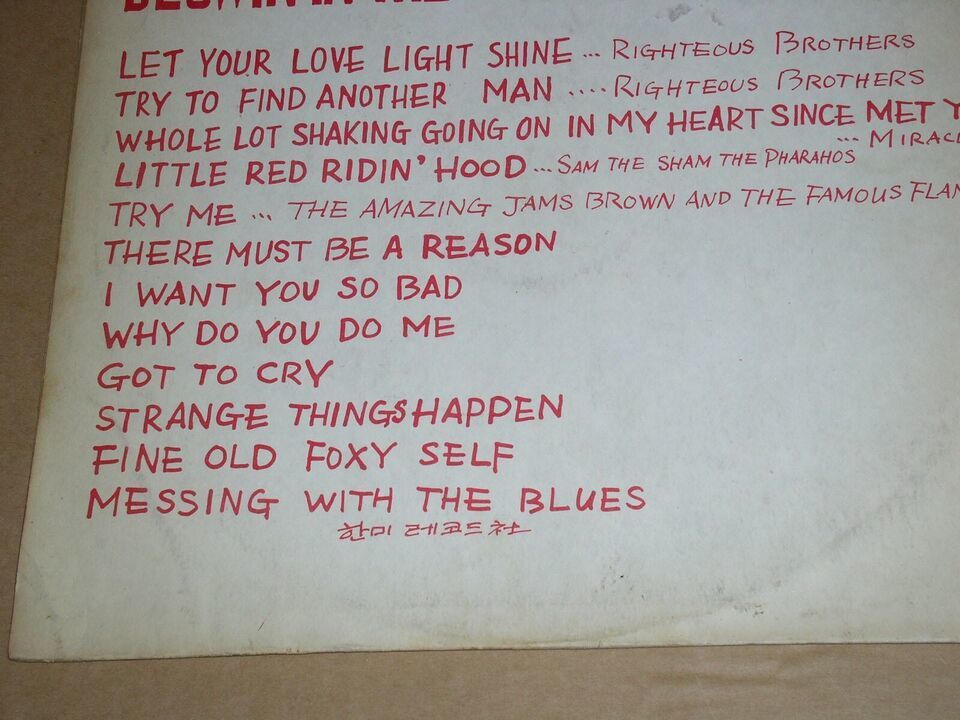 LET YOUR LOVE LIGHT SHINE ... RIGHTEOUS BROTHERS
TRY TO FIND ANOTHER MAN .... RIGHTEOUS BROTHERS
WHOLE LOT SHAKING GOING ON IN MY HEART SINCE MET
... MIRACL
LITTLE RED RIDIN' HOOD ... SAM THE SHAM THE PHARAHOS
TRY ME ... THE AMAZING JAMS BROWN AND THE FAMOUS FLAM
THERE MUST BE A REASON
I WANT YOU SO BAD
WHY DO YOU DO ME
GOT TO CRY
STRANGE THINGS HAPPEN
FINE OLD FOXY SELF
MESSING WITH THE BLUES
한미 레코드社